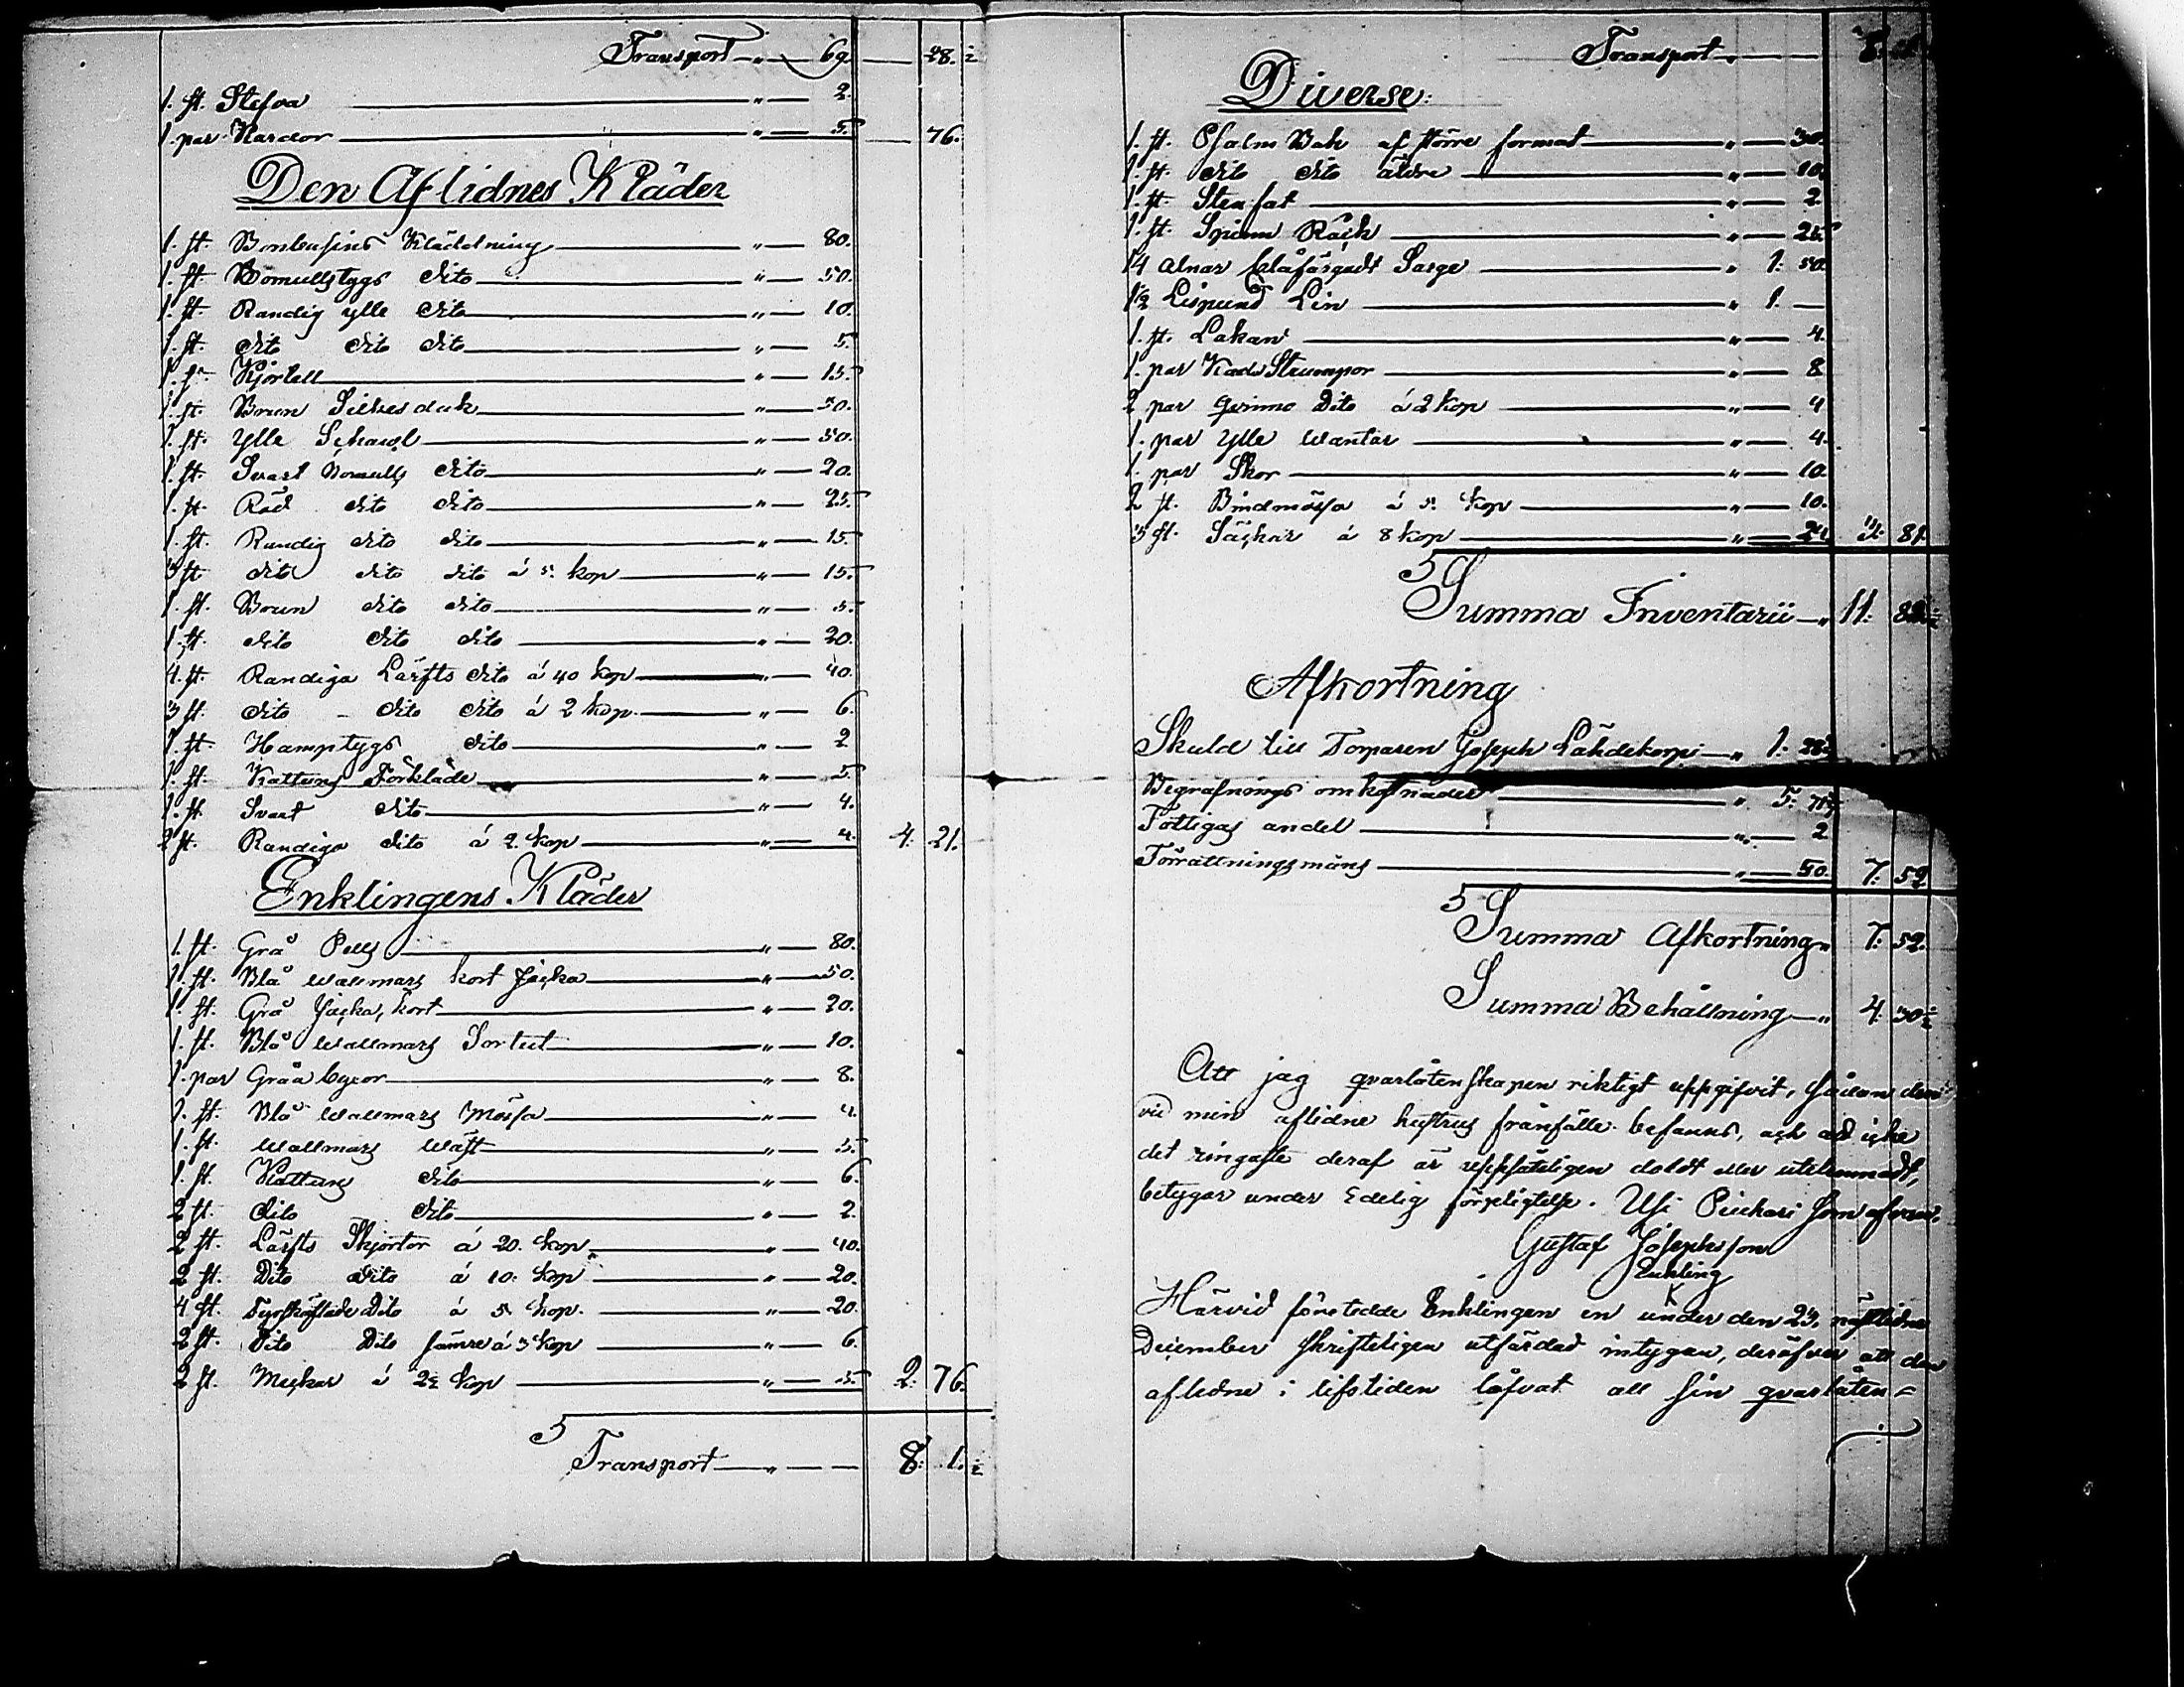 Transport " 69. 28.½
1. st. Stefva " 2.
1. par Kardor " 5. 76.
Den Aflidnes Kläder
1. st. Bombasins Klädning " 80.
1. st. Bomullstygs dito " 50.
1. st. Randig ylle dito " 10.
1. st. dito dito dito " 5.
1. st. Kjortell " 15.
1. st. Brun Silkesduk " 50.
1. st. Ylle Schawl " 50.
1. st. Svart Bomulls dito " 20.
1. st. Röd dito dito " 25.
1. st. Randig dito dito " 15.
3 st. dito dito dito á 5. kop " 15.
1. st. Brun dito dito " 5.
1. st. dito dito dito " 20.
1. st. Randiga Lärfts dito á 40 kop " 40.
3 st. dito - dito dito á 2 kop. " 6.
1. st. Hamptygs dito " 2
1. st. Kattuns Förkläde " 5.
1. st. Svart dito " 4.
2 st. Randiga dito á 2 kop " 4. 4. 21.
Enklingens Kläder
1. st. Grå Pells " 80.
1. st. Blå Wallmars kort Jacka " 50.
1. st. Grå Jacka, kort " 20.
1. st. Blå Wallmars Sortut " 10.
1. par Gråa byxor " 8.
1. st. Blå Wallmars Mössa " 4.
1. st. Wallmars Wäst " 5.
1. st. Kattuns dito " 6.
2 st. dito dito " 2.
2 st. Lärfts Skjortor á 20. kop " 40.
2 st. Dito dito á 10. kop " 20.
4 st. Fyrskäftade Dito á 5 kop. " 20.
2 st. Dito Dito sämre á 3 kop " 6.
2 st. á 2½ kop " 5. 2. 76.
Transport " 8. 1.½
Transport "
Diverse:
1. st. Psalm Bok af större format " 30.
1. st. dito dito äldre " 10.
1. st. Stenfat " 2
1. st. Spinn Råck " 25
14 alnar blåfärgadt Sarge " 1. 50.
1½ Lispund Lin " 1. —
1. st. Lakan " 4.
1. par Strumpor " 8
2 par Dito á 2 kop " 4
1. par Ylle Wantar " 4.
1. par Skor " 10.
2 st. Bindmössa á 5. kop " 10.
3 st. Säckar á 8 kop " 24 3. 81.
Summa Inventarii " 11. 82½
Afkortning
Skuld till Torparen Joseph Lähdekorpi " 1.
Begrafnings omkostnader " 5.
Fattigas andel " 2
Förrättningsmäns " 50. 7. 52
Summa Afkortning " 7. 52.
Summa Behållning " 4. 30½
Att jag qvarlåtenskapen riktigt uppgifvit, sådan den
vid min aflidne hustrus frånfälle befanns, och att icke
det ringaste deraf är uppsåteligen doldt eller utelemnadt,
betygar under Edelig förpligtelse. Usi som ofvan.
Gustaf Josephsson
Enkling
Härvid företedde Enklingen en under den 23. nästlidne
December skrifteligen utfärdad intygan, deröfver att den
aflidne i lifstiden låfvat all sin qvarlåten-